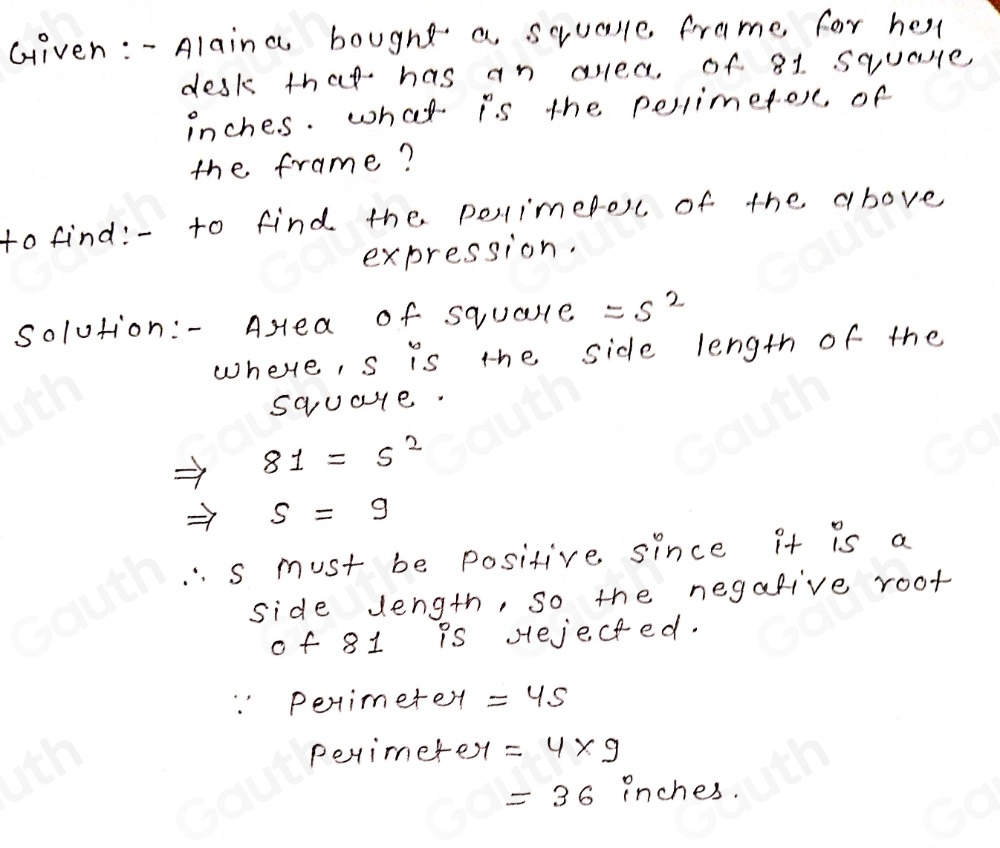 Given :- Alaina bought a square frame for her
desk that has an area of 81 square
inches. what is the perimeter of
the frame?
to find:- to find the perimeter of the above
expression.
Solution:- Area of square = s²
where, s is the side length of the
square.
⇒ 81 = s²
⇒ s = 9
∴ s must be positive since it is a
side length, so the negative root
of 81 is rejected.
∵ Perimeter = 4s
Perimeter = 4×9
= 36 inches.